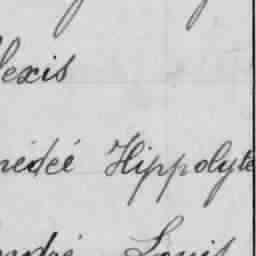 lexis
médeé Hippolyte
André Louis